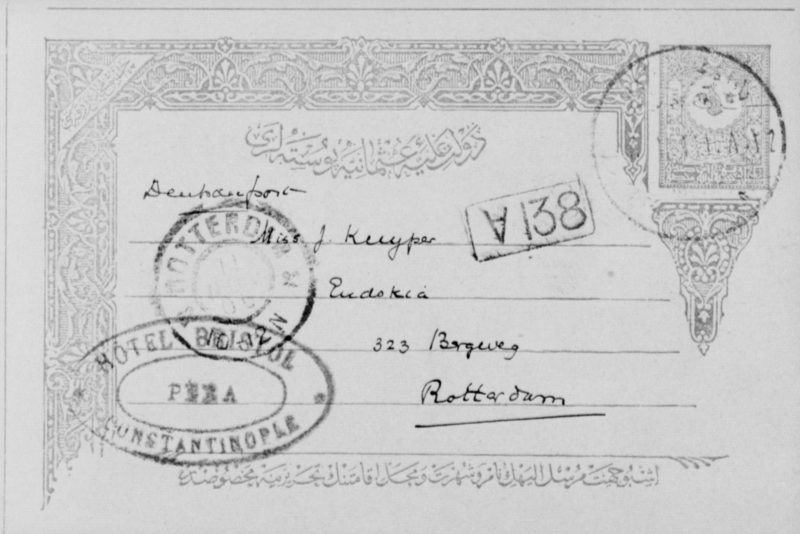 دولت عليه عثمانيه پوسته لرى
Miss. J. Kuyper
A 138
Eudokia
323 Bergweg
Rotterdam
ROTTERDAM
HÔTEL BRISTOL
PERA
CONSTANTINOPLE